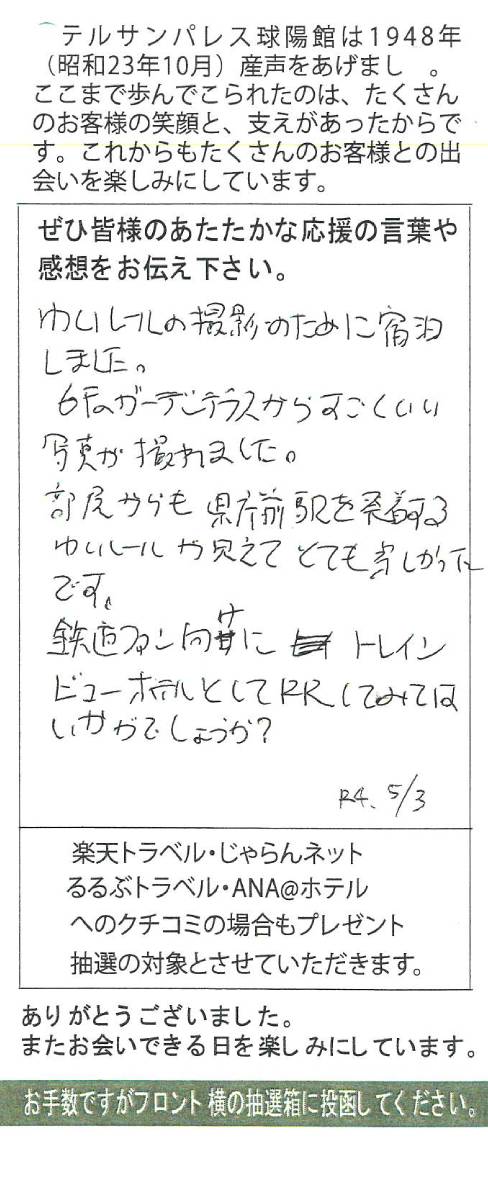 テルサンパレス球陽館は1948年
（昭和23年10月）産声をあげまし 。
ここまで歩んでこられたのは、たくさん
のお客様の笑顔と、支えがあったからで
す。これからもたくさんのお客様との出
会いを楽しみにしています。
ぜひ皆様のあたたかな応援の言葉や
感想をお伝え下さい。
ゆいレールの撮影のために宿泊
しました。
6Fのガーデンテラスからすごくいい
写真が撮れました。
部屋からも県庁前駅を発着する
ゆいレールが見えてとても楽しかった
です。
鉄道ファン向けに トレイン
ビューホテルとしてPRしてみては
いかがでしょうか?
R4. 5/3
楽天トラベル・じゃらんネット
るるぶトラベル・ANA@ホテル
へのクチコミの場合もプレゼント
抽選の対象とさせていただきます。
ありがとうございました。
またお会いできる日を楽しみにしています。
お手数ですがフロント横の抽選箱に投函してください。